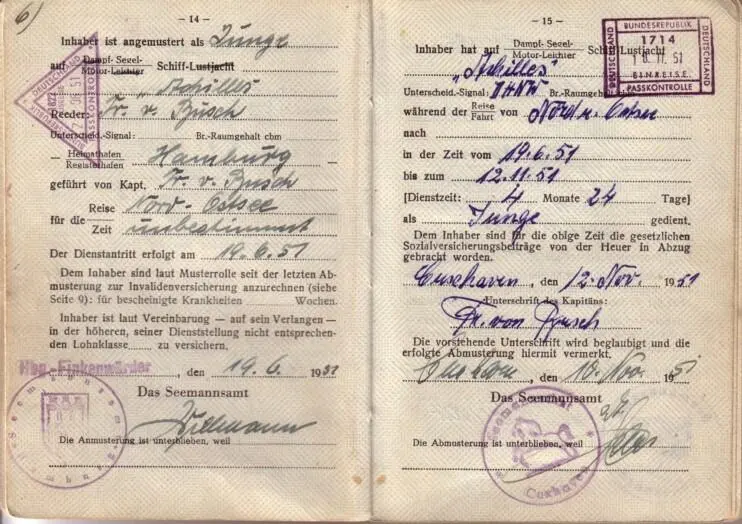 6)
– 14 –
Inhaber ist angemustert als Junge
auf Dampf- Segel- Motor-Leichter Schiff-Lustjacht
„Achilles"
Reeder: Fr. v. Busch
Unterscheid.-Signal: Br.-Raumgehalt cbm
Heimathafen Registerhafen Hamburg
geführt von Kapt. Fr. v. Busch
für die Reise Zeit Nord-Ostsee
unbestimmt
Der Dienstantritt erfolgt am 19.6.51
Dem Inhaber sind laut Musterrolle seit der letzten Ab-
musterung zur Invalidenversicherung anzurechnen (siehe
Seite 9): für bescheinigte Krankheiten Wochen.
Inhaber ist laut Vereinbarung — auf sein Verlangen —
in der höheren, seiner Dienststellung nicht entsprechen-
den Lohnklasse zu versichern.
Hbg.-Finkenwärder, den 19.6. 1951
Das Seemannsamt
Die Anmusterung ist unterblieben, weil
DEUTSCHLAND
PASSKONTROLLE
– 15 –
Inhaber hat auf Dampf- Segel- Motor-Leichter Schiff-Lustjacht
„Achilles"
Unterscheid.-Signal: Br.-Raumgehalt cbm
während der Reise Fahrt von Nord u. Ostsee
nach
in der Zeit vom 19.6.51
bis zum 12.11.51
[Dienstzeit: 4 Monate 24 Tage]
als Junge gedient.
Dem Inhaber sind für die obige Zeit die gesetzlichen
Sozialversicherungsbeiträge von der Heuer in Abzug
gebracht worden.
Cuxhaven, den 12. Nov. 1951
Unterschrift des Kapitäns:
Fr. von Busch
Die vorstehende Unterschrift wird beglaubigt und die
erfolgte Abmusterung hiermit vermerkt.
Cuxhaven, den Nov. 1951
Das Seemannsamt
Die Abmusterung ist unterblieben, weil
BUNDESREPUBLIK
DEUTSCHLAND
1714
EINREISE
DEUTSCHLAND
PASSKONTROLLE
Seemannsamt
Cuxhaven